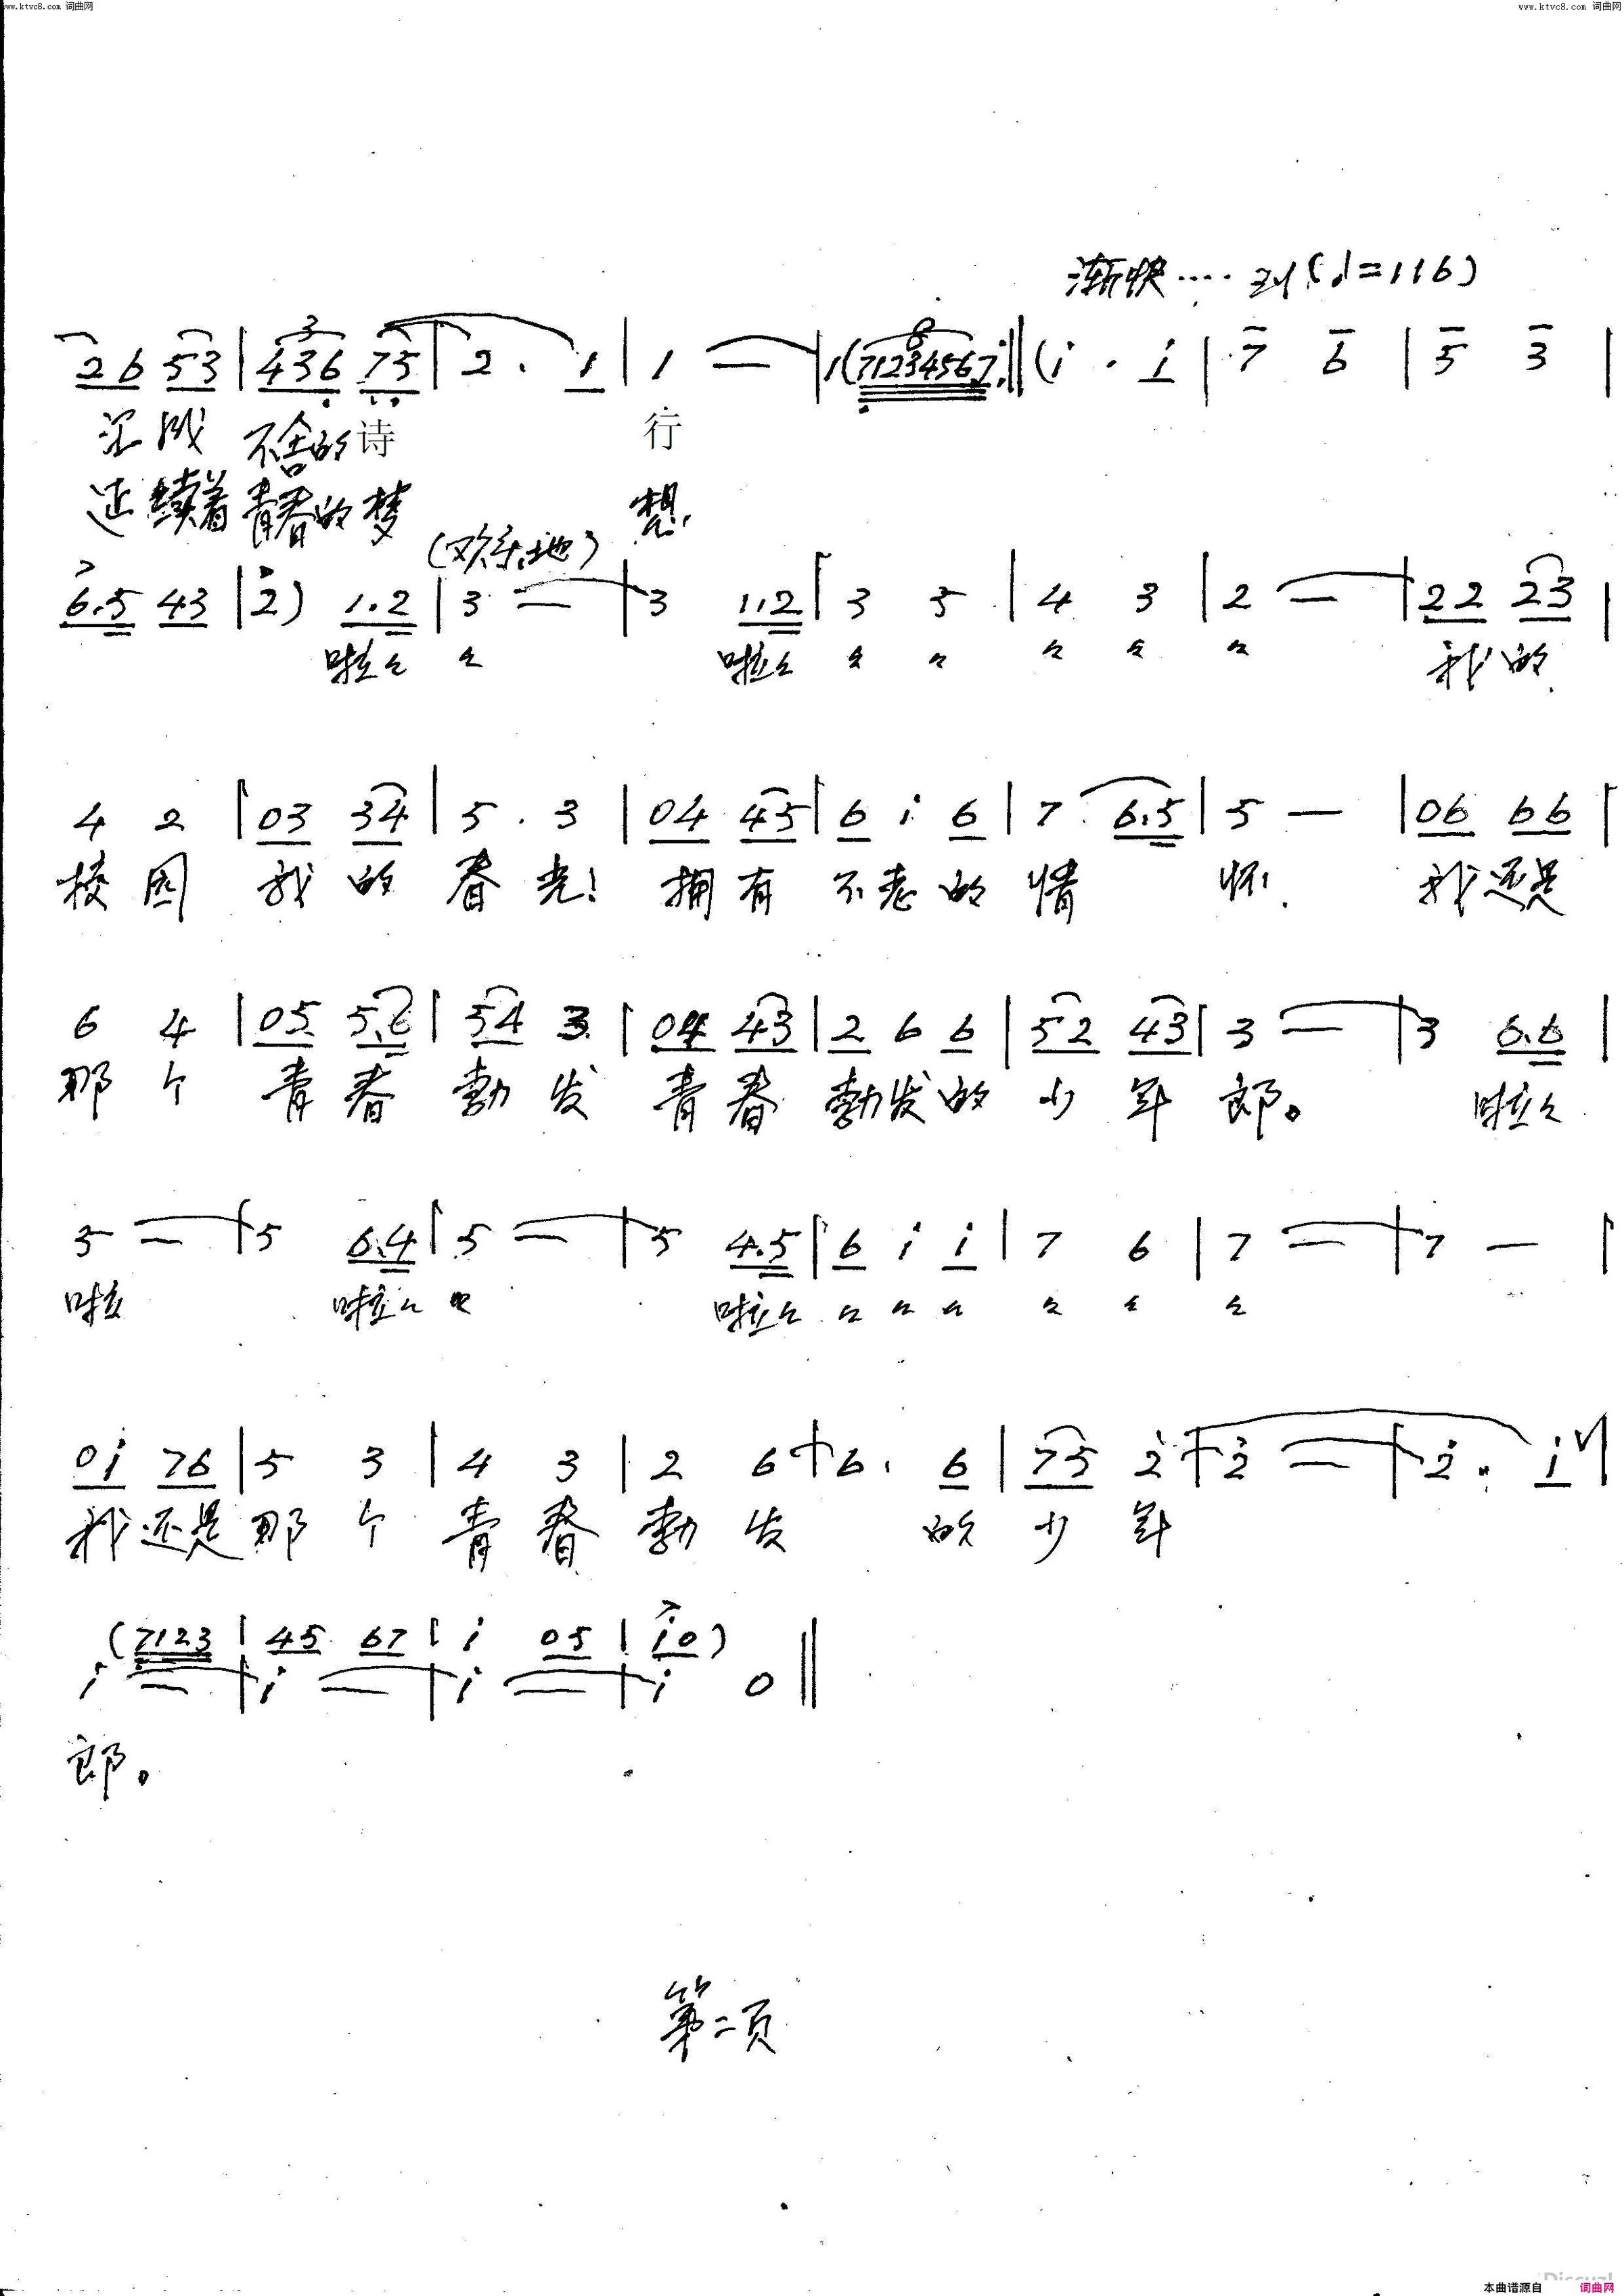 www.ktvc8.com 词曲网 www.ktvc8.com 词曲网
渐快···· 到(♩=116)
2 6 5 3 | 4 3 6 7 5 | 2 . 1 | 1 — | 1 (7 1 2 3 4 5 6 7 :‖ (i . i | 7 6 | 5 3 |
汇成 不舍的诗 行
延续着青春的梦 想
(欢乐地)
6.5 43 | 2) 1.2 | 3 — | 3 1.2 | 3 5 | 4 3 | 2 — | 22 23 |
啦々 々 啦々 々 々 々 々 々 我的
4 2 | 03 34 | 5 . 3 | 04 45 | 6 i 6 | 7 6.5 | 5 — | 06 66 |
校园 我的春光! 拥有不老的情怀! 我还是
6 4 | 05 5.6 | 54 3 | 04 43 | 2 6 6 | 52 43 | 3 — | 3 6.6 |
那个青春勃发青春勃发的少年郎。 啦々
5 — | 5 6.4 | 5 — | 5 4.5 | 6 i i | 7 6 | 7 — | 7 — |
啦 啦々 々 啦々 々 々 々 々 々 々
0i 76 | 5 3 | 4 3 | 2 6 | 6. 6 | 75 2 | 2 — | 2. i |
我还是那个青春勃发 的少年
(7123 | 45 67 | i 05 | i0)
i — | i — | i — | i 0 ‖
郎。
第二页
Discuz!
本曲谱源自 词曲网